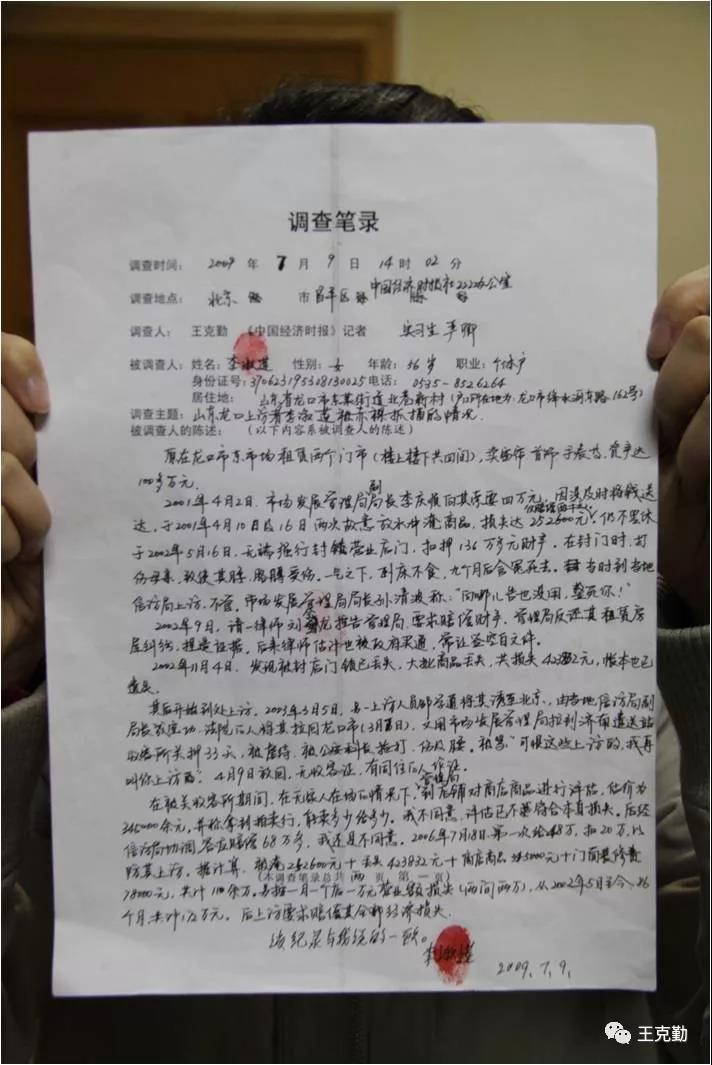 调查笔录
调查时间： 2009 年 7 月 9 日 14 时 02 分
调查地点： 北京 市昌平区 中国经济时报社222办公室
调查人： 王克勤 《中国经济时报》记者 实习生
被调查人：姓名：李淑莲 性别：女 年龄：56岁 职业：个体户
身份证号：370623195308130025 电话： 0535-8526264
居住地： 山东省龙口市东莱街道北巷新村（户口所在地为：龙口市绛水河东路162号）
调查主题：山东龙口上访者李淑莲被 的情况
被调查人的陈述：（以下内容系被调查人的陈述）
原在龙口市东市场租赁两个门市（楼上楼下共四间），卖 首饰 ，资产达
100多万元。
2001年4月2日，市场发展管理局副局长李庆 向其索要四万元，因没及时将钱送
达，于2001年4月10日及16日两次故意放水冲淹商品，损失达252600元，仍不罢休
于2002年5月16日，无端强行封锁营业店门，扣押136万多元财产。在封门时，打
伤母亲，致使其腰、胳膊受伤。一气之下，到床不食，九个月后含冤死去。当时到当地
信访局上访，不管，市场发展管理局局长孙清波称：“向哪儿告也没用，整死你！”
2002年9月，请一律师刘 龙控告管理局，要求赔偿财产，管理局反诬其租赁房
屋纠纷，捏造证据。后来律师估计也被政府买通，常让签空白文件。
2002年11月4日，发现被封店门锁已丢失，大批商品丢失，共损失423832元，帐本也已
遗失。
其后开始到处上访。2003年3月5日，另一上访人员 将其诱至北京，由当地信访局副
局长 功、法院 人将其拉回龙口市（3月8日），又用市场发展管理局 到济南遣送站
收容所关押33天，被虐待，被公安科长 打，伤及腰。被骂“可恨这些上访的，我再
叫你上访 ”。4月9日放回，无收容证，有同住 人作证。
在被关收容所期间，在无家人在场的情况下，管理局到店铺对商店商品进行评估，估价为
345000余元，并称拿到拍卖行，能卖多少给多少。我不同意，评估已不符合本真损失。后经
信访局协调，答应赔偿68万多，我还是不同意。2006年7月18日，第一次给48万，扣20万，以
防其上访。据计算， 淹252600元＋丢失423832元＋商店商品345000元＋门面装修费
（本调查笔录总共 两 页，第 一 页）
78000元，共计110余万。另按一月一个店一万元营业额损失（两间两万），从2002年5月至今，86
个月，共计172万元。后上访要求赔偿其全部经济损失。
该纪录与我说的一致。
李淑莲
2009.7.9.
王克勤